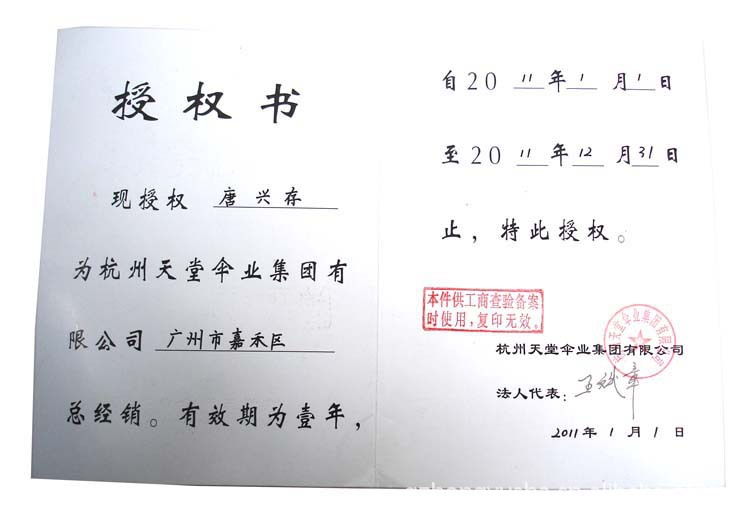 授权书
现授权 唐兴存
为杭州天堂伞业集团有
限公司 广州市嘉禾区
总经销。有效期为壹年，
自20 11 年 1 月 1 日
至20 11 年 12 月 31 日
止，特此授权。
本件供工商查验备案
时使用，复印无效。
杭州天堂伞业集团有限公司
法人代表：
2011年 1 月 1 日